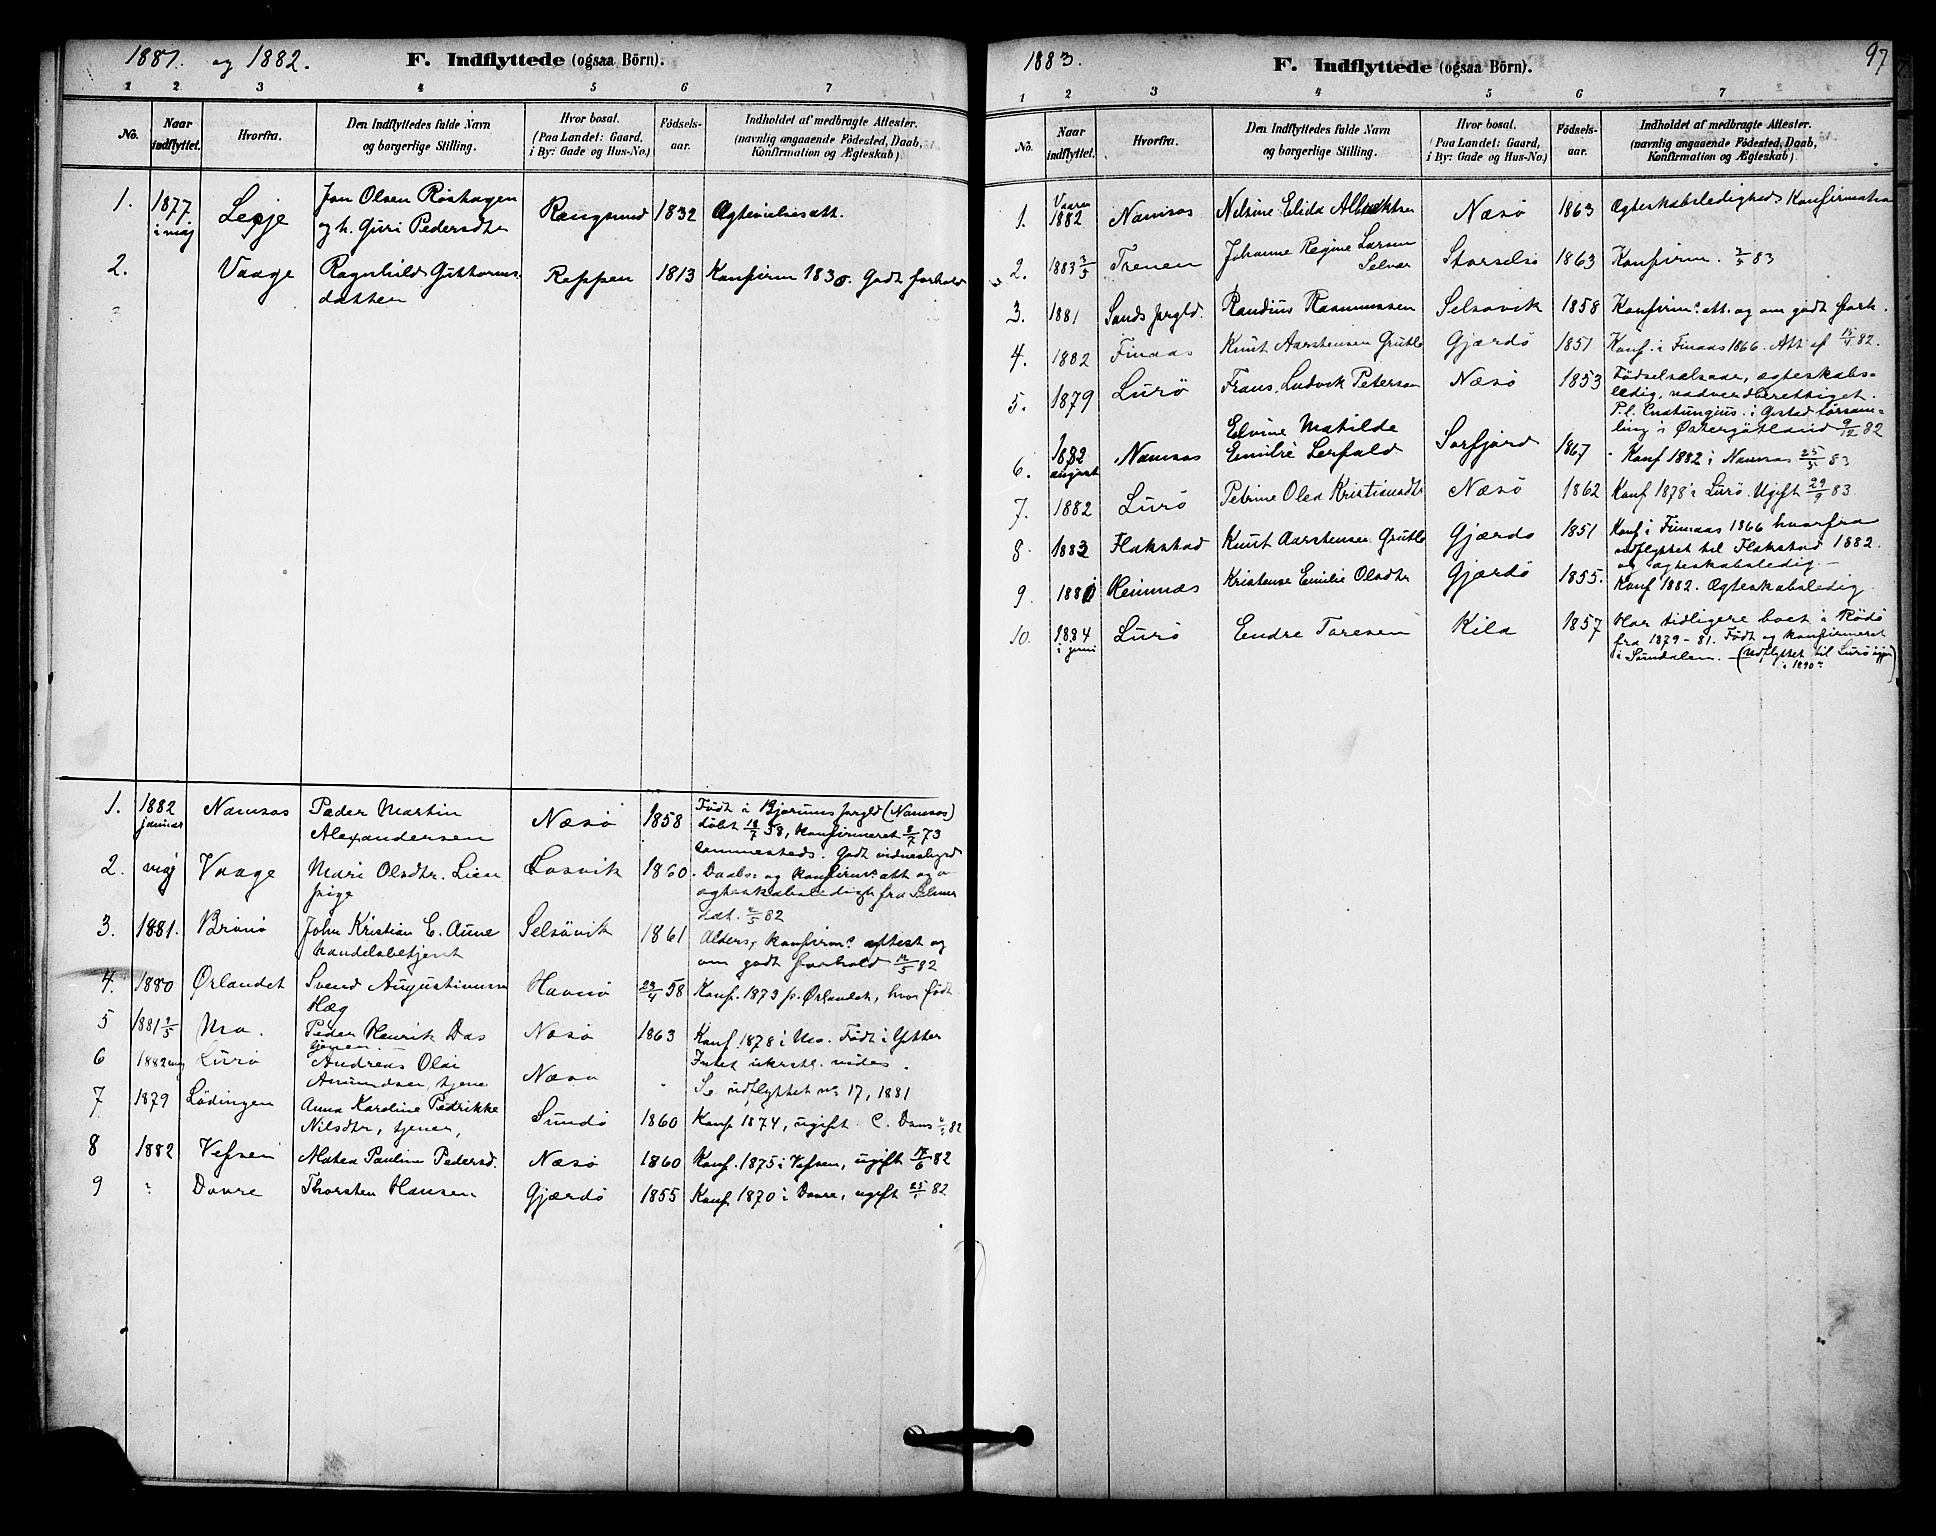 1881. og 1882.
F. Indflyttede (ogsaa Börn).
1 2 3 4 5 6 7
No.
Naar indflyttet.
Hvorfra.
Den Indflyttedes fulde Navn og borgerlige Stilling.
Hvor bosat. (Paa Landet: Gaard, i By: Gade og Hus-No.)
Födsels-aar.
Indholdet af medbragte Attester. (navnlig angaaende Födested, Daab, Konfirmation og Ægteskab)
1. 1877 i maj Lesje Jon Olsen Röshagen Rangsund 1832 Ægtevielsesatt.
og h. Guri Pedersdtr
2. Vaage Ragnhild Guttorms- Reppen 1813 Konfirm 1830. Godt forhold
datter
1. 1882 januar Namsos Peder Martin Næsö 1858 Födt i Bjørums prgld (Namsos)
Alexandersen döbt 18/7 58, konfirmeret 2/7 73
sammesteds. Godt vidnesbyrd
2. maj Vaage Mari Olsdtr. Lien 1860. Daabs- og konfirm: att og
pige ægteskabsledigh. fra
dat. 2/5 82
3. 1881. Brönö John Kristian E. Aune Selsövik 1861 Alders, konfirm: attest og
handelsbetjent om godt forhold 12/5 82
4. 1880 Ørlandet Svend Augustinusen Havnö 29/4 58 Konf. 1873 p. Ørlandet, hvor födt.
Hæg
5 1881 Mo. Peder Henrik Das Næsö 1863 Konf. 1878 i Mo. Födt i Ytter
tjener
6 1882 Lurö Andreas Olai Næsö Intet ukrstl. vides.
Amundsen, tjene Se udflyttet no 17, 1881
7 1879 Lödingen Anna Karoline Petrikke Sundö 1860 Konf. 1874, ugift. C. Daas 82
Nilsdtr, tjener,
8 1882 Vefsen Alotea Pauline Pedersd. Næsö 1860 Konf. 1875 i Vefsen, ugift 82
9 " Dovre Thorsten Hansen Gjærdö 1855 Konf. 1870 i Dovre, ugift 25/1 82
1883.
F. Indflyttede (ogsaa Börn).
97
1 2 3 4 5 6 7
No.
Naar indflyttet.
Hvorfra.
Den Indflyttedes fulde Navn og borgerlige Stilling.
Hvor bosat. (Paa Landet: Gaard, i By: Gade og Hus-No.)
Födsels-aar.
Indholdet af medbragte Attester. (navnlig angaaende Födested, Daab, Konfirmation og Ægteskab)
1. Vaaren 1882 Namsos Nelsine Elida Albrektsen Næsö 1863 Ægteskabsledigheds Konfirmation
2. 1883 3/5 Trenen Johanne Regine Larsen Storselsö 1863 Konfirm. 3/5 83
Selvær
3. 1881 Sands prgld. Randius Rasmussen Selsovik 1858 Konfirm: att. og om godt forh.
4. 1882 Finaas Knut Aarstensen Grutle Gjærdö 1851 Konf. i Finaas 1866. Att af 15/4 82.
5. 1879 Lurö Frans Ludvik Peterson Næsö 1853 Födselsaar, ægteskabs-
ledig, nadverdberettiget.
P.l. i församling
i Østergötland 9/12 82
6. 1882 august Namsos Elvine Matilde Sorfjord 1867 Konf 1882 i Namsos 25/5 83
Emilie Lerfald
7. 1882 Lurö Petrine Olea Kristiansdtr Næsö 1862 Konf 1878 i Lurö. Ugift 29/9 83
8. 1883 Flakstad Knut Aarstensen Grutle Gjærdö 1851 Konf i Finnaas 1866 hvorfra
udflyttet til Flakstad 1882.
og ægteskabsledig.
9. 1881 Hemnæs Kristense Emilie Olsdtr Gjærdö 1855. Konf 1882. Ægteskabsledig
10. 1884 i juni Lurö Endre Toresen Kila 1857 Har tidligere boet i Rödö
fra 1879-81. Födt og konfirmeret
i Sundalen. (Udflyttet til Lurö igjen
i 1890)